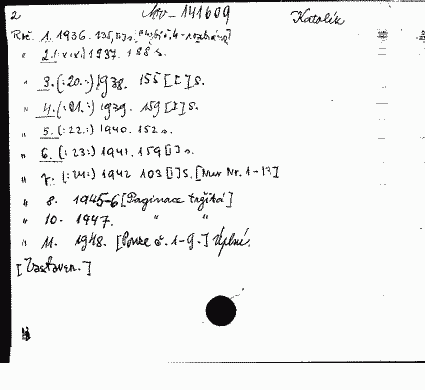 2 Mv-141609 Katolík
Roč. 1. 1936. 135, [I] s.
" 2. (:XIX:) 1937. 188 s.
" 3. (:20.:) 1938. 155 [I] s.
" 4. (:21.:) 1939. 159 [I] s.
" 5. (:22:) 1940. 152 s.
" 6. (:23:) 1941. 159 [I] s.
" 7. (:24:) 1942 103 [I] s. [Nr. 1-13]
" 8. 1945-6 [Paginace]
" 10. 1947. " "
" 11. 1948. [Pouze č. 1-9.] Úplné.
[Zastaven.]